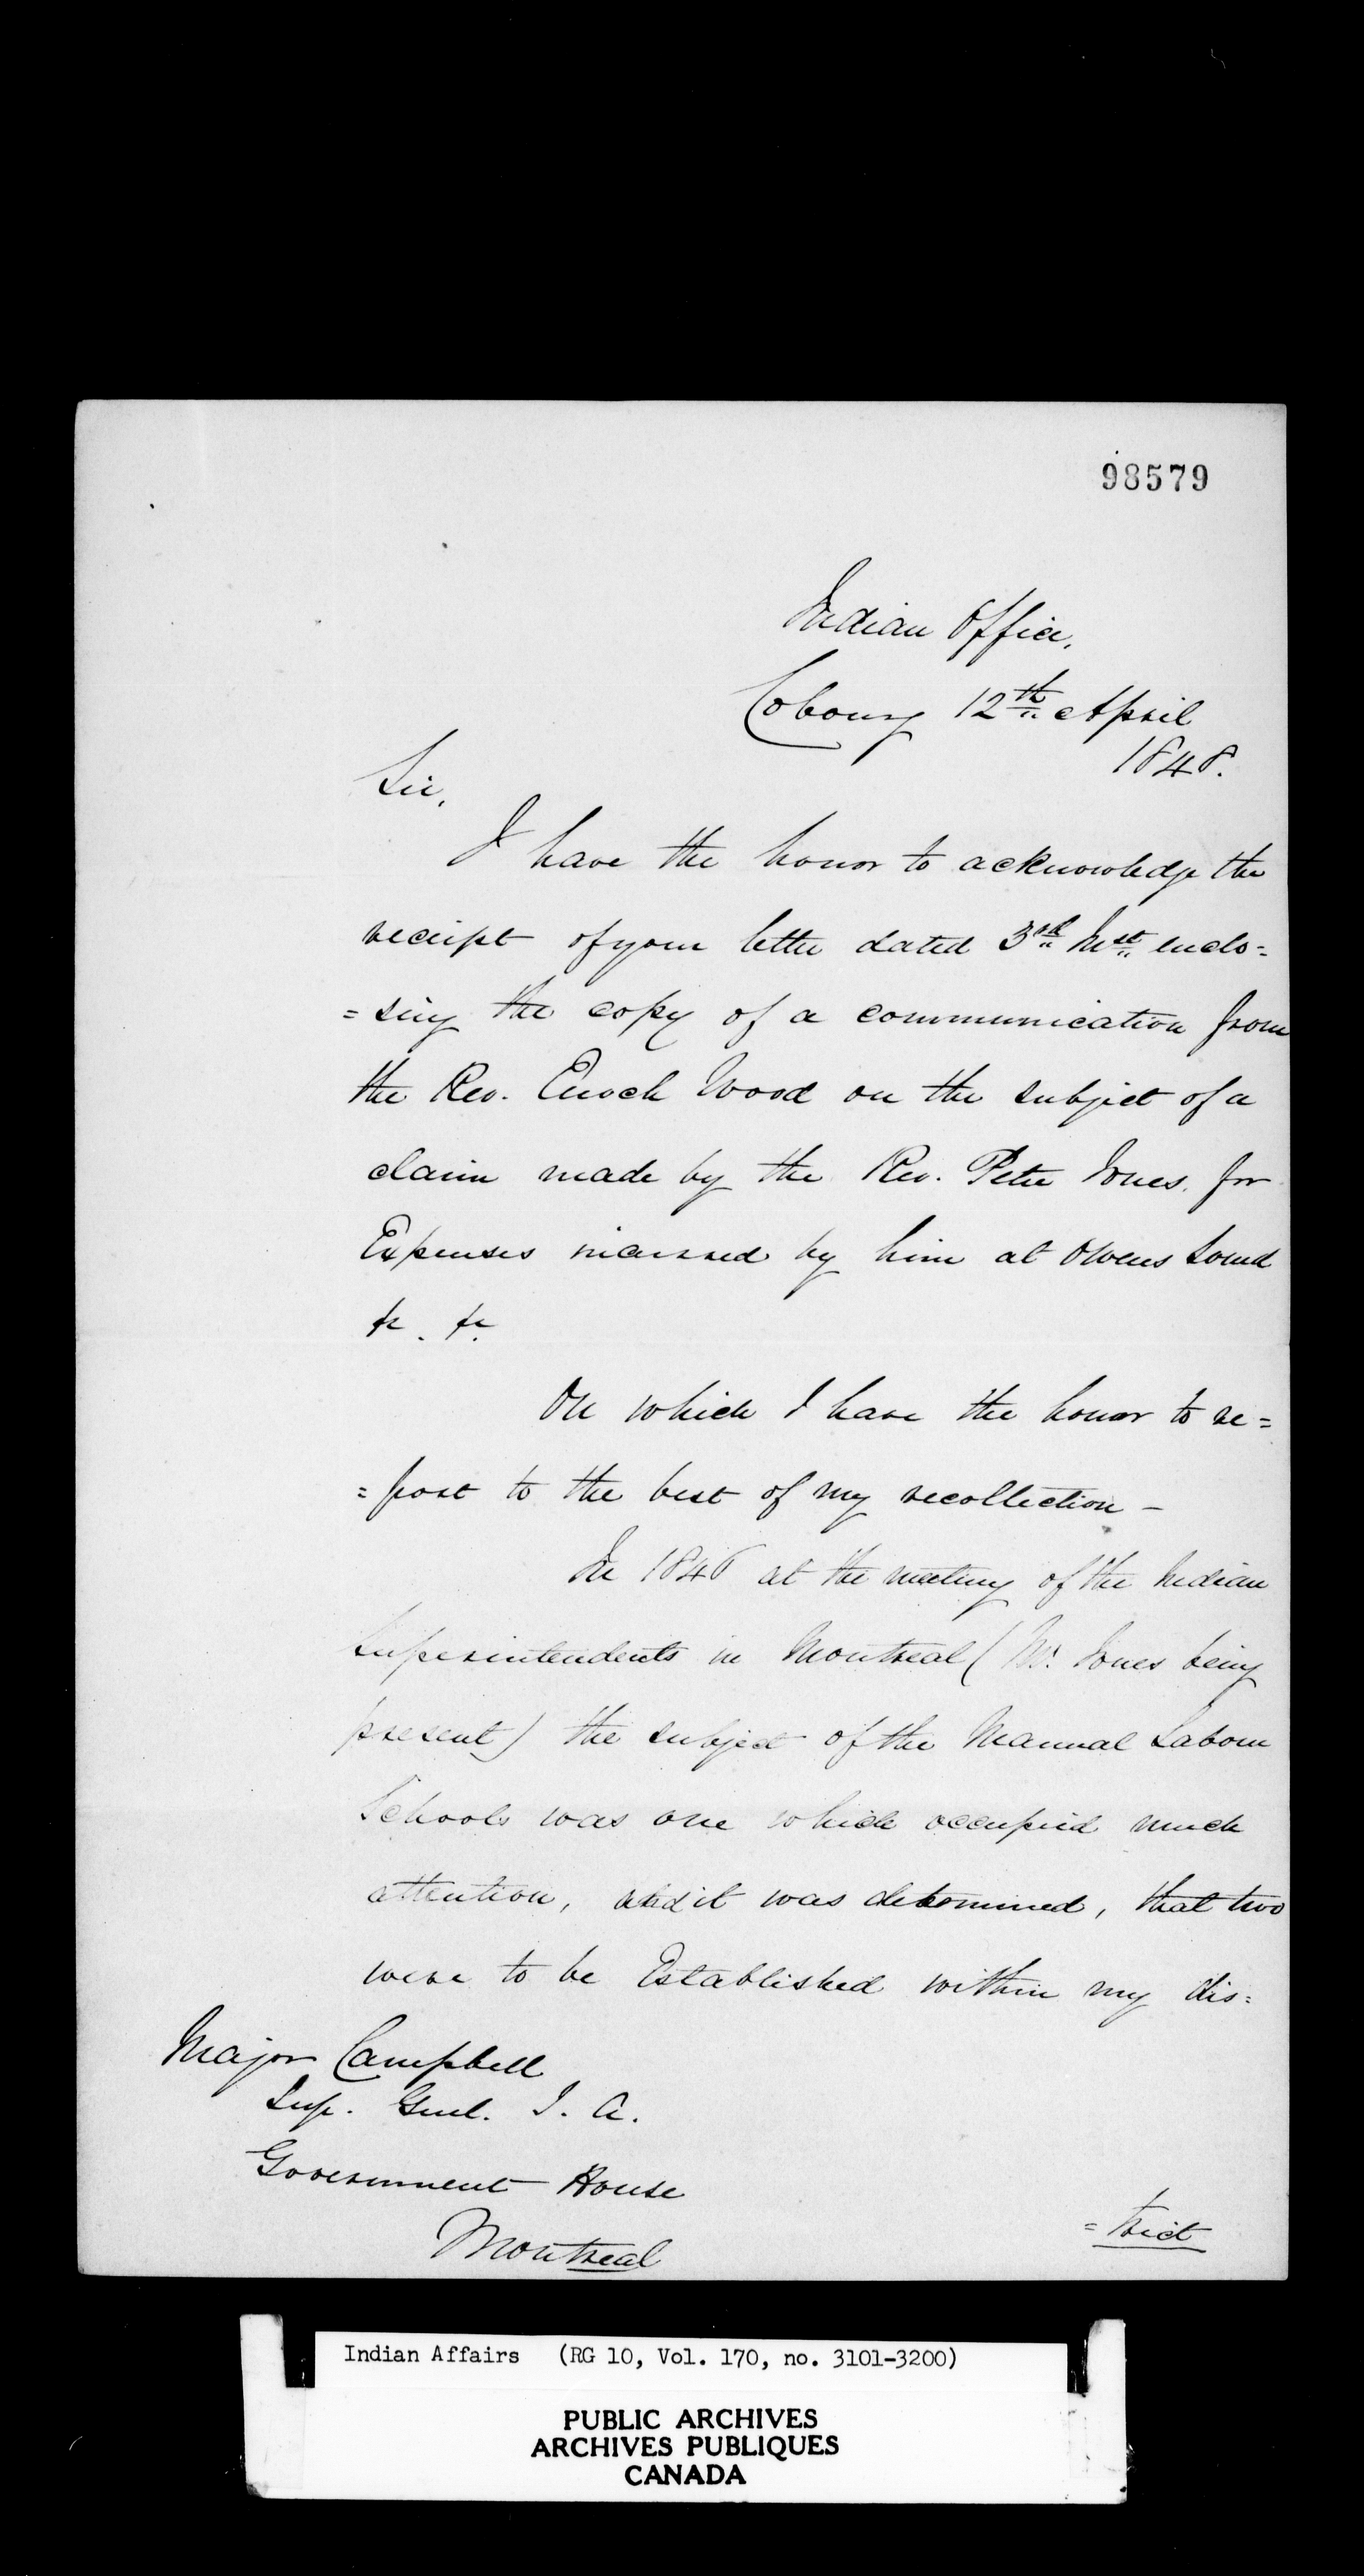 98579
Indian Office,
Cobourg 12th April
1848.
Sir,
I have the honor to acknowledge the
receipt of your letter dated 3rd Inst. enclo=
=sing the copy of a communication from
the Rev. Enoch Wood on the subject of a
claim made by the Rev. Peter Jones for
Expenses incurred by him at Owens Sound
&c. &c.
On which I have the honor to re=
=port to the best of my recollection -
In 1846 at the meeting of the Indian
Superintendents in Montreal (Mr. Jones being
present) the subject of the Manual Labour
Schools was one which occupied much
attention, and it was determined, that two
were to be Established within my dis=
Major Campbell
Sup. Genl. I. A.
Government House
Montreal
=trict
Indian Affairs (RG 10, Vol. 170, no. 3101-3200)
PUBLIC ARCHIVES
ARCHIVES PUBLIQUES
CANADA